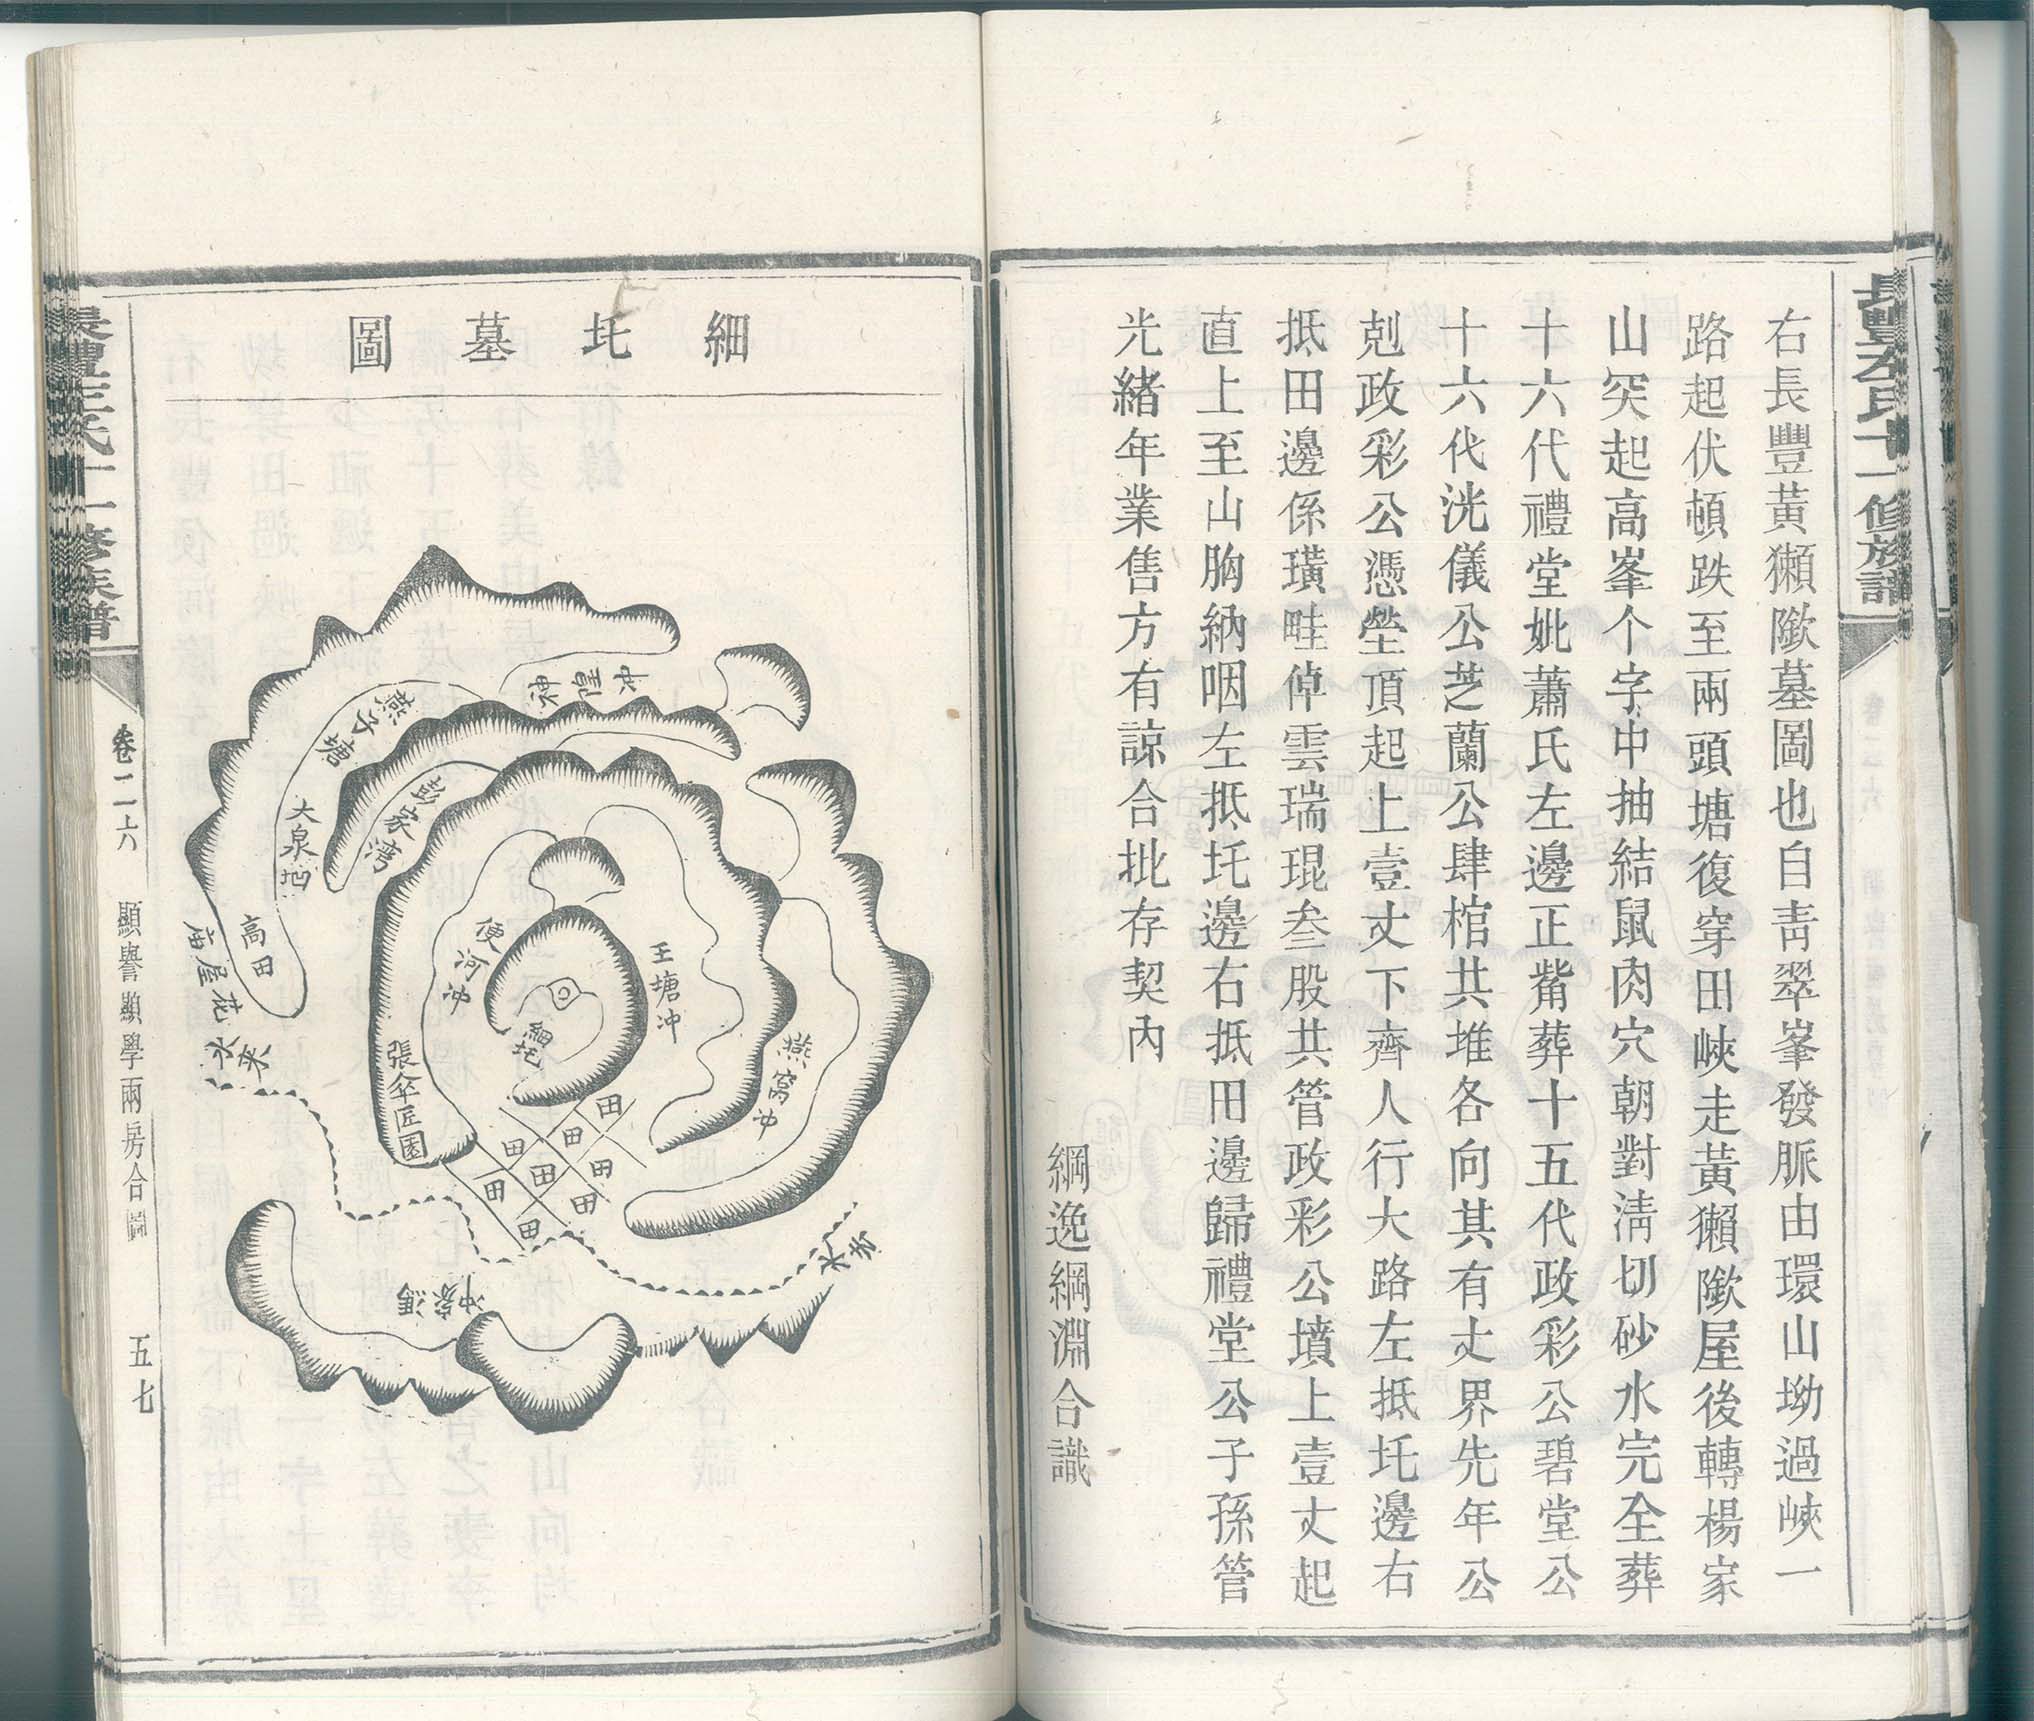 右長豐黃獺隞墓圖也自靑翠峯發脈由環山坳過峽一
路起伏頓跌至兩頭塘復穿田峽走黃獺隞屋後轉楊家
山突起高峯个字中抽結鼠肉穴朝對淸切砂水完全葬
十六代禮堂妣蕭氏左邊正觜葬十五代政彩公碧堂公
十六代洸儀公芝蘭公肆棺共堆各向其有丈界先年公
剋政彩公憑塋頂起上壹丈下齊人行大路左抵圫邊右
抵田邊係璜畦倬雲瑞琨叁股共管政彩公墳上壹丈起
直上至山胸納咽左抵圫邊右抵田邊歸禮堂公子孫管
光緖年業售方有諒合批存契內
綱逸綱淵合識
細圫墓圖
燕子塘
大泉
高田
庙屋
彭家湾
便河冲
王塘冲
細圫
張傘匠園
燕窝冲
田
田
田
田
田
田
田
田
来水
去水
馮家冲
卷二十六
顯譽顯學兩房合圖
五七
長豐左氏十一修族譜